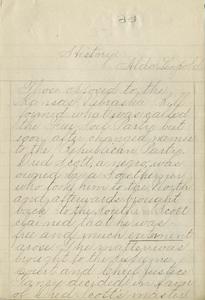 History
those opposed to the
Kansas Nebraska Bill
formed what was called
the Free Soil Party but
soon after changed name
to the Republican Party.
Dred Scott, a negro, was
owned by a Southerner
who took him to the North
and afterwards brought
back to the South. Scott
claimed that he was
free and much
arose. The matter was
brought to the Supreme
Court and Chief Justice
Taney decided in favor
of Dred Scott's master